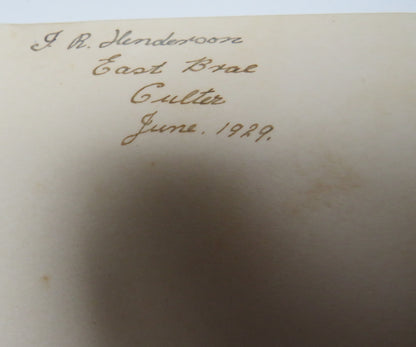 J. R. Henderson
East Brae
Culter
June. 1929.